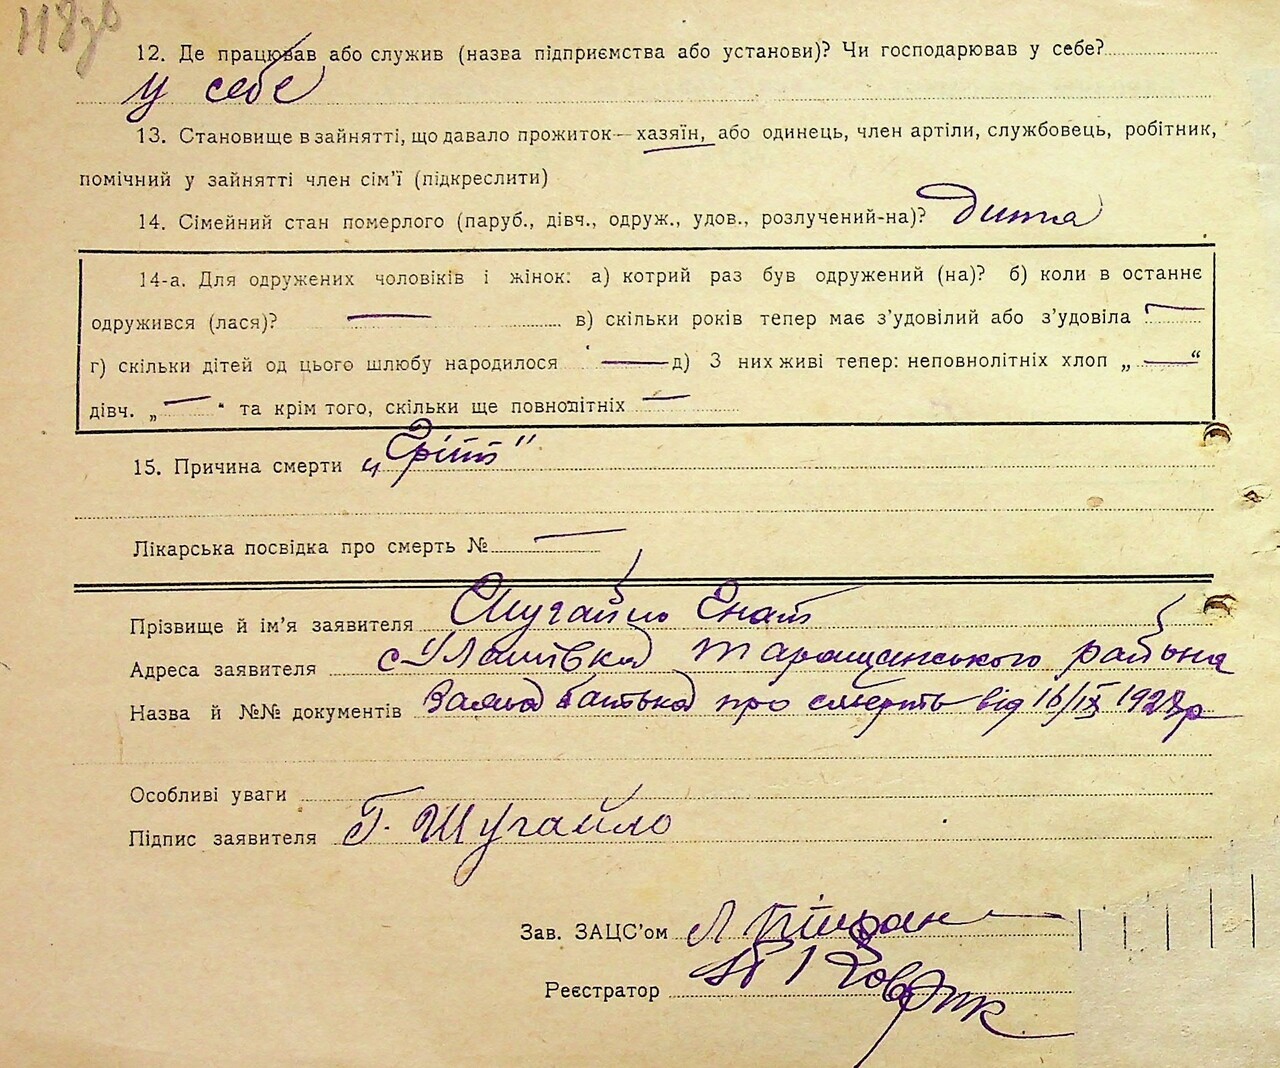 118зв
12. Де працював або служив (назва підприємства або установи)? Чи господарював у себе?
у себе
13. Становище в зайнятті, що давало прожиток—хазяїн, або одинець, член артіли, службовець, робітник,
помічний у зайнятті член сім'ї (підкреслити)
14. Сімейний стан померлого (паруб., дівч., одруж., удов., розлучений-на)? Дитя
14-а. Для одружених чоловіків і жінок: а) котрий раз був одружений (на)? б) коли в останнє
одружився (лася)? — в) скільки років тепер має з'удовілий або з'удовіла —
г) скільки дітей од цього шлюбу народилося — д) З них живі тепер: неповнолітніх хлоп „ — “
дівч. „ — “ та крім того, скільки ще повнолітніх —
15. Причина смерти
Лікарська посвідка про смерть № —
Прізвище й ім'я заявителя Шугайло Гнат
Адреса заявителя с Улашівка Таращанського района
Назва й №№ документів Заява батька про смерть від 16/IX 192 р
Особливі уваги
Підпис заявителя Г. Шугайло
Зав. ЗАЦС'ом
Реєстратор